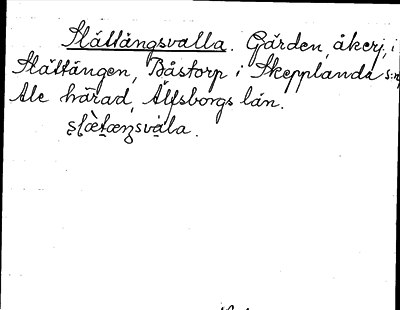 Slättängsvalla. Gärden, åkerj, i
Slättängen, Båstorp i Skepplanda s:n,
Ale härad, Älfsborgs län.